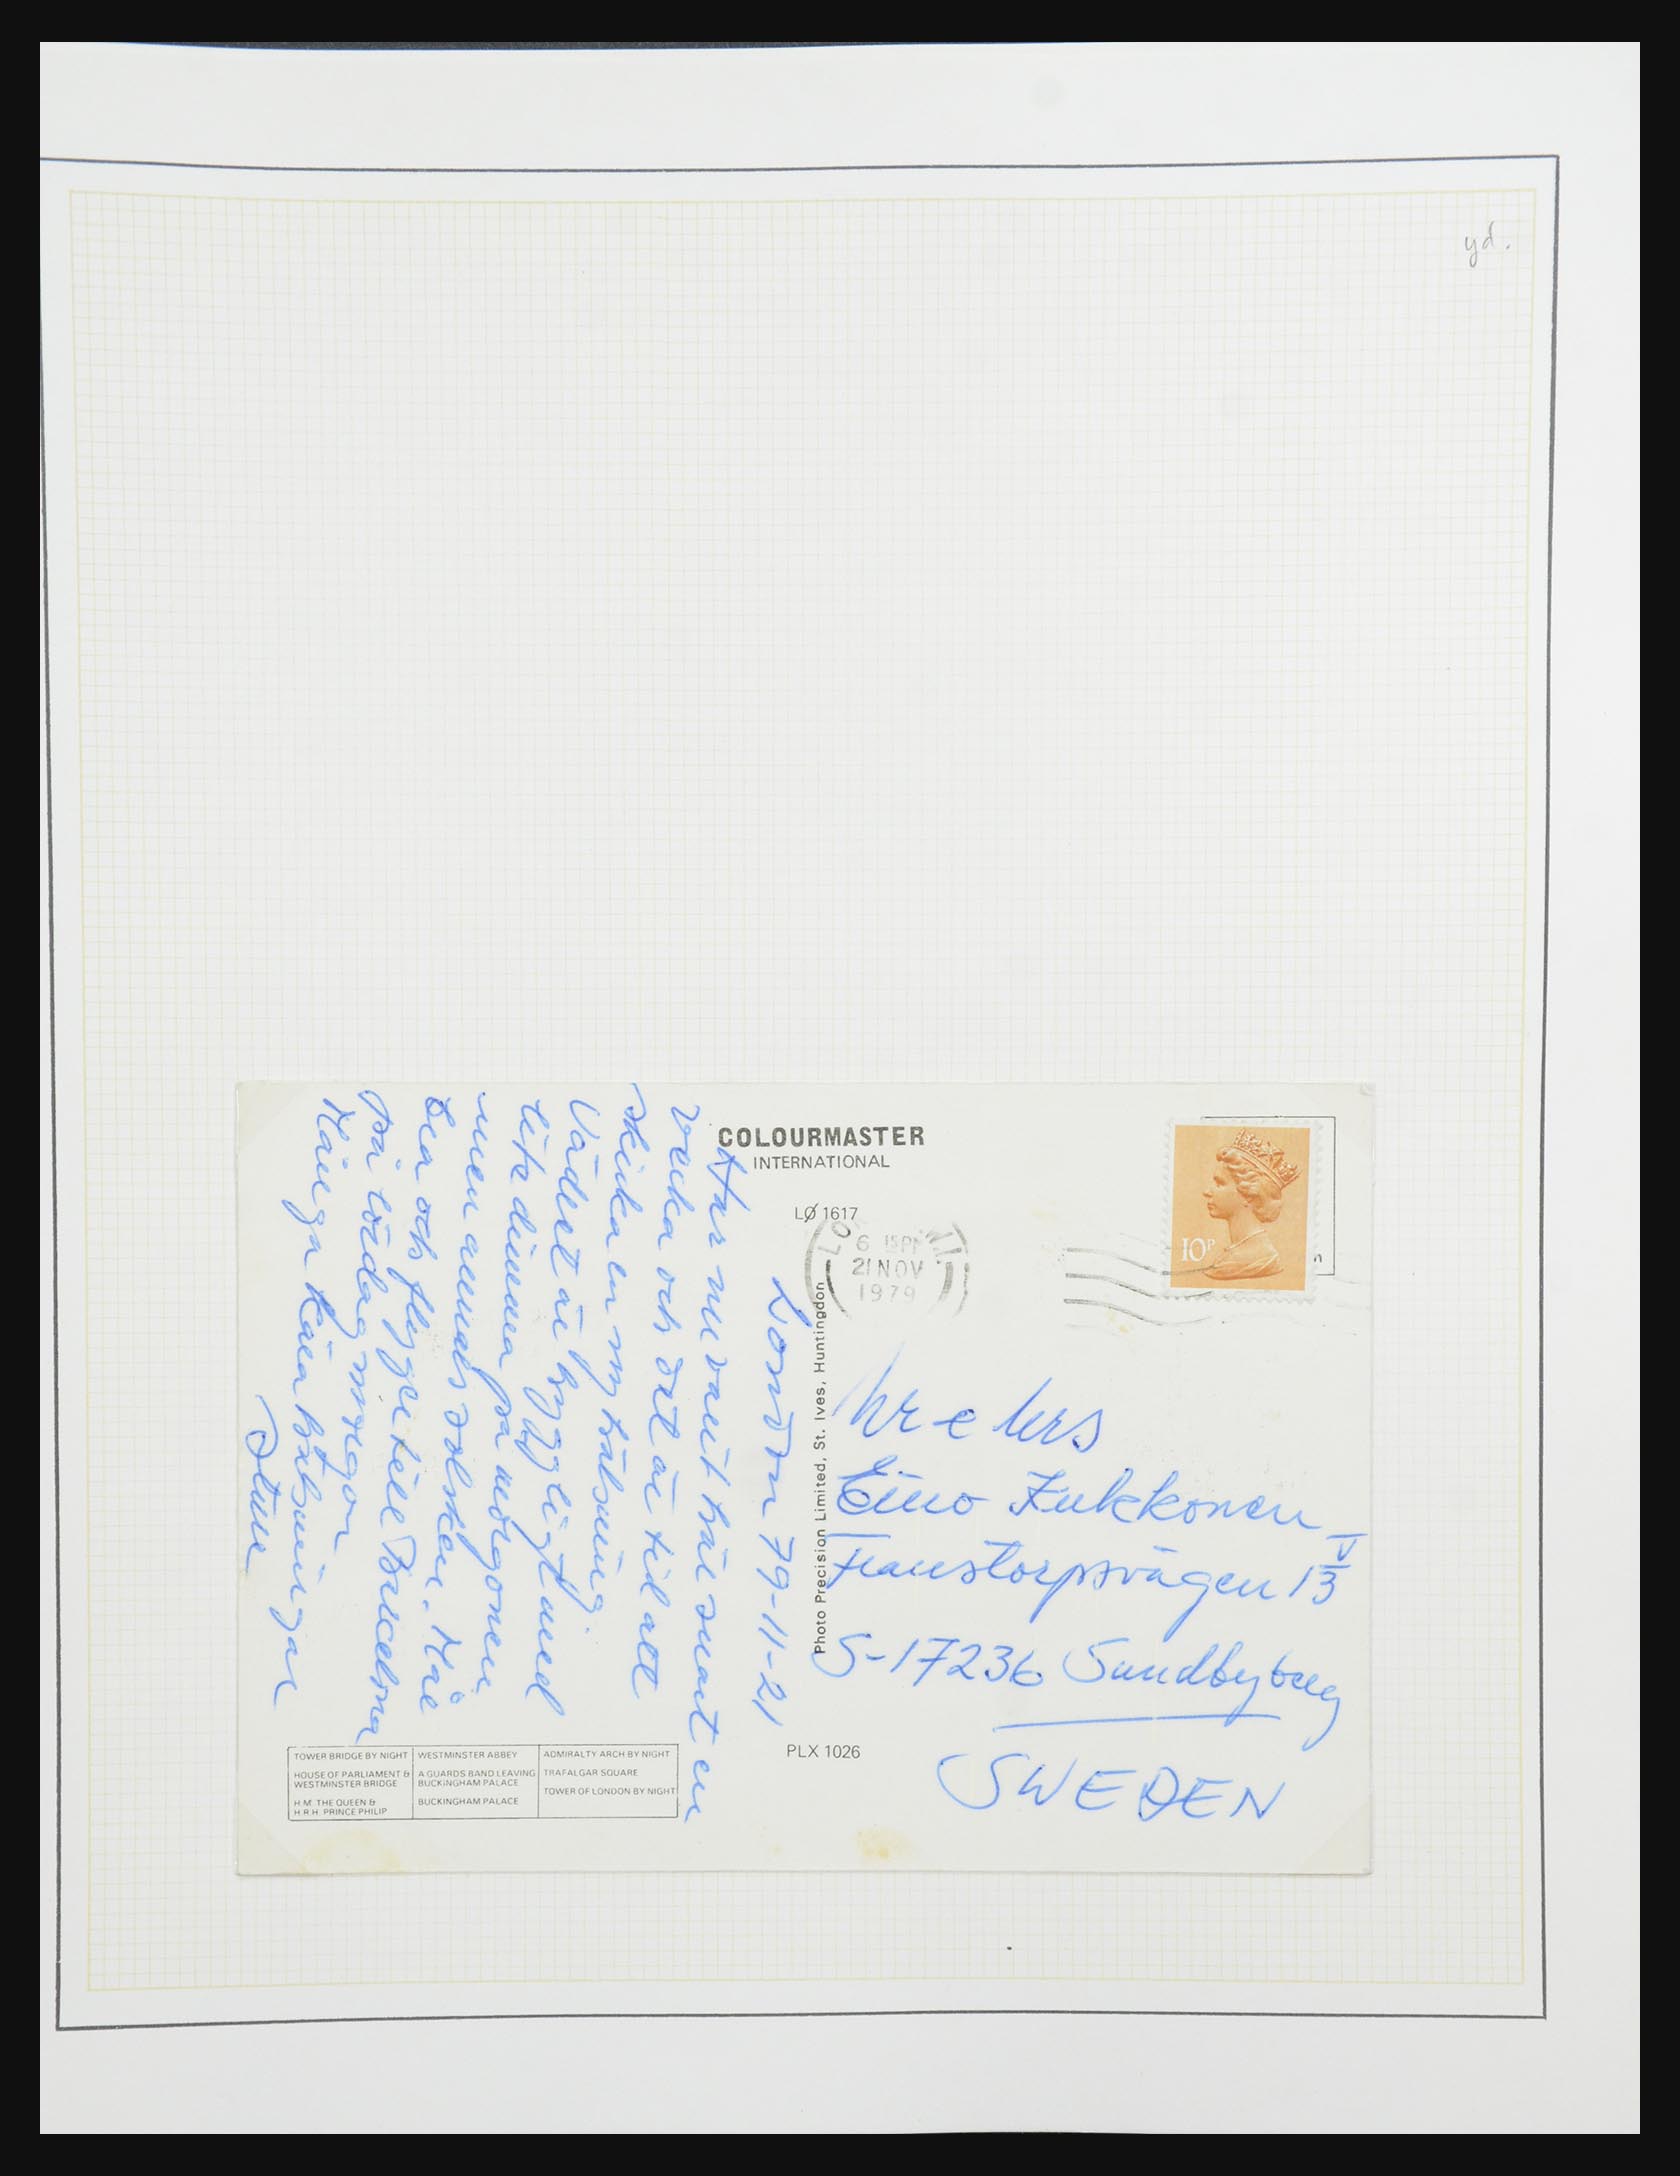 yd.
COLOURMASTER
INTERNATIONAL
LØ 1617
6 15PM
21 NOV
1979
10P
London 79-11-21
Har nu varit här snart en
vecka och det är tid att
skicka en ny hälsning.
Vädret är hyggligt med
lite dimma på morgonen
men annars solsken. Mår
bra och flyger till Barcelona
på lördag morgon
Många kära hälsningar
Sture
Photo Precision Limited, St. Ives, Huntingdon
Mr & Mrs
Eino
V
13
S-17236 Sundbyberg
SWEDEN
PLX 1026
TOWER BRIDGE BY NIGHT
HOUSE OF PARLIAMENT &
WESTMINSTER BRIDGE
H.M. THE QUEEN &
H.R.H. PRINCE PHILIP
WESTMINSTER ABBEY
A GUARDS BAND LEAVING
BUCKINGHAM PALACE
BUCKINGHAM PALACE
ADMIRALTY ARCH BY NIGHT
TRAFALGAR SQUARE
TOWER OF LONDON BY NIGHT